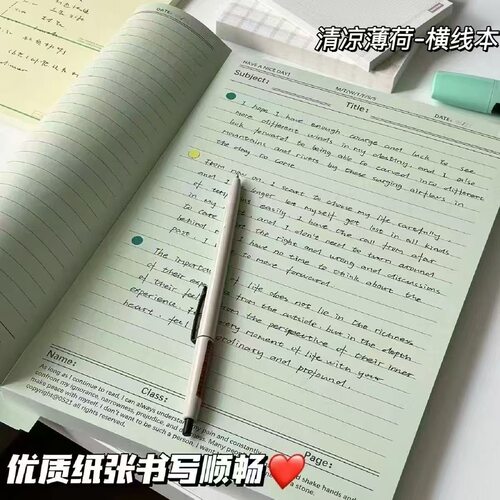 清凉薄荷-横线本
HAVE A NICE DAY!
M/T/W/T/F/S/S
DATE:
Subject:
Title:
I hope I have enough courage and luck to see
more different winds in my destiny, and I also
look forward to being able to carved into different
mountains and rivers by those surging airflows in
the day to come
From now on, I start to choose my life carefully
and I no longer let myself get lost in all kinds
of easily. I have the call from afar
in my and I don't need to turn around
to care the right and wrong and discussions
behind I have no time to think about the
past, I to move forward.
The importance of life does not lie in the richness
of their from the outside, but in the depth
of their from the perspective of their inner
experience. every moment of life with your
heart, feel ordinary and profound.
Name:
Class:
Page:
As long as I continue to read, I can always understand my pain and constantly
confront my ignorance, narrowness, prejudice, and
make peace with myself, I don't want to be such a person, I want
copyright@0521 all rights reserved.
shake hands and
a stone.
优质纸张书写顺畅